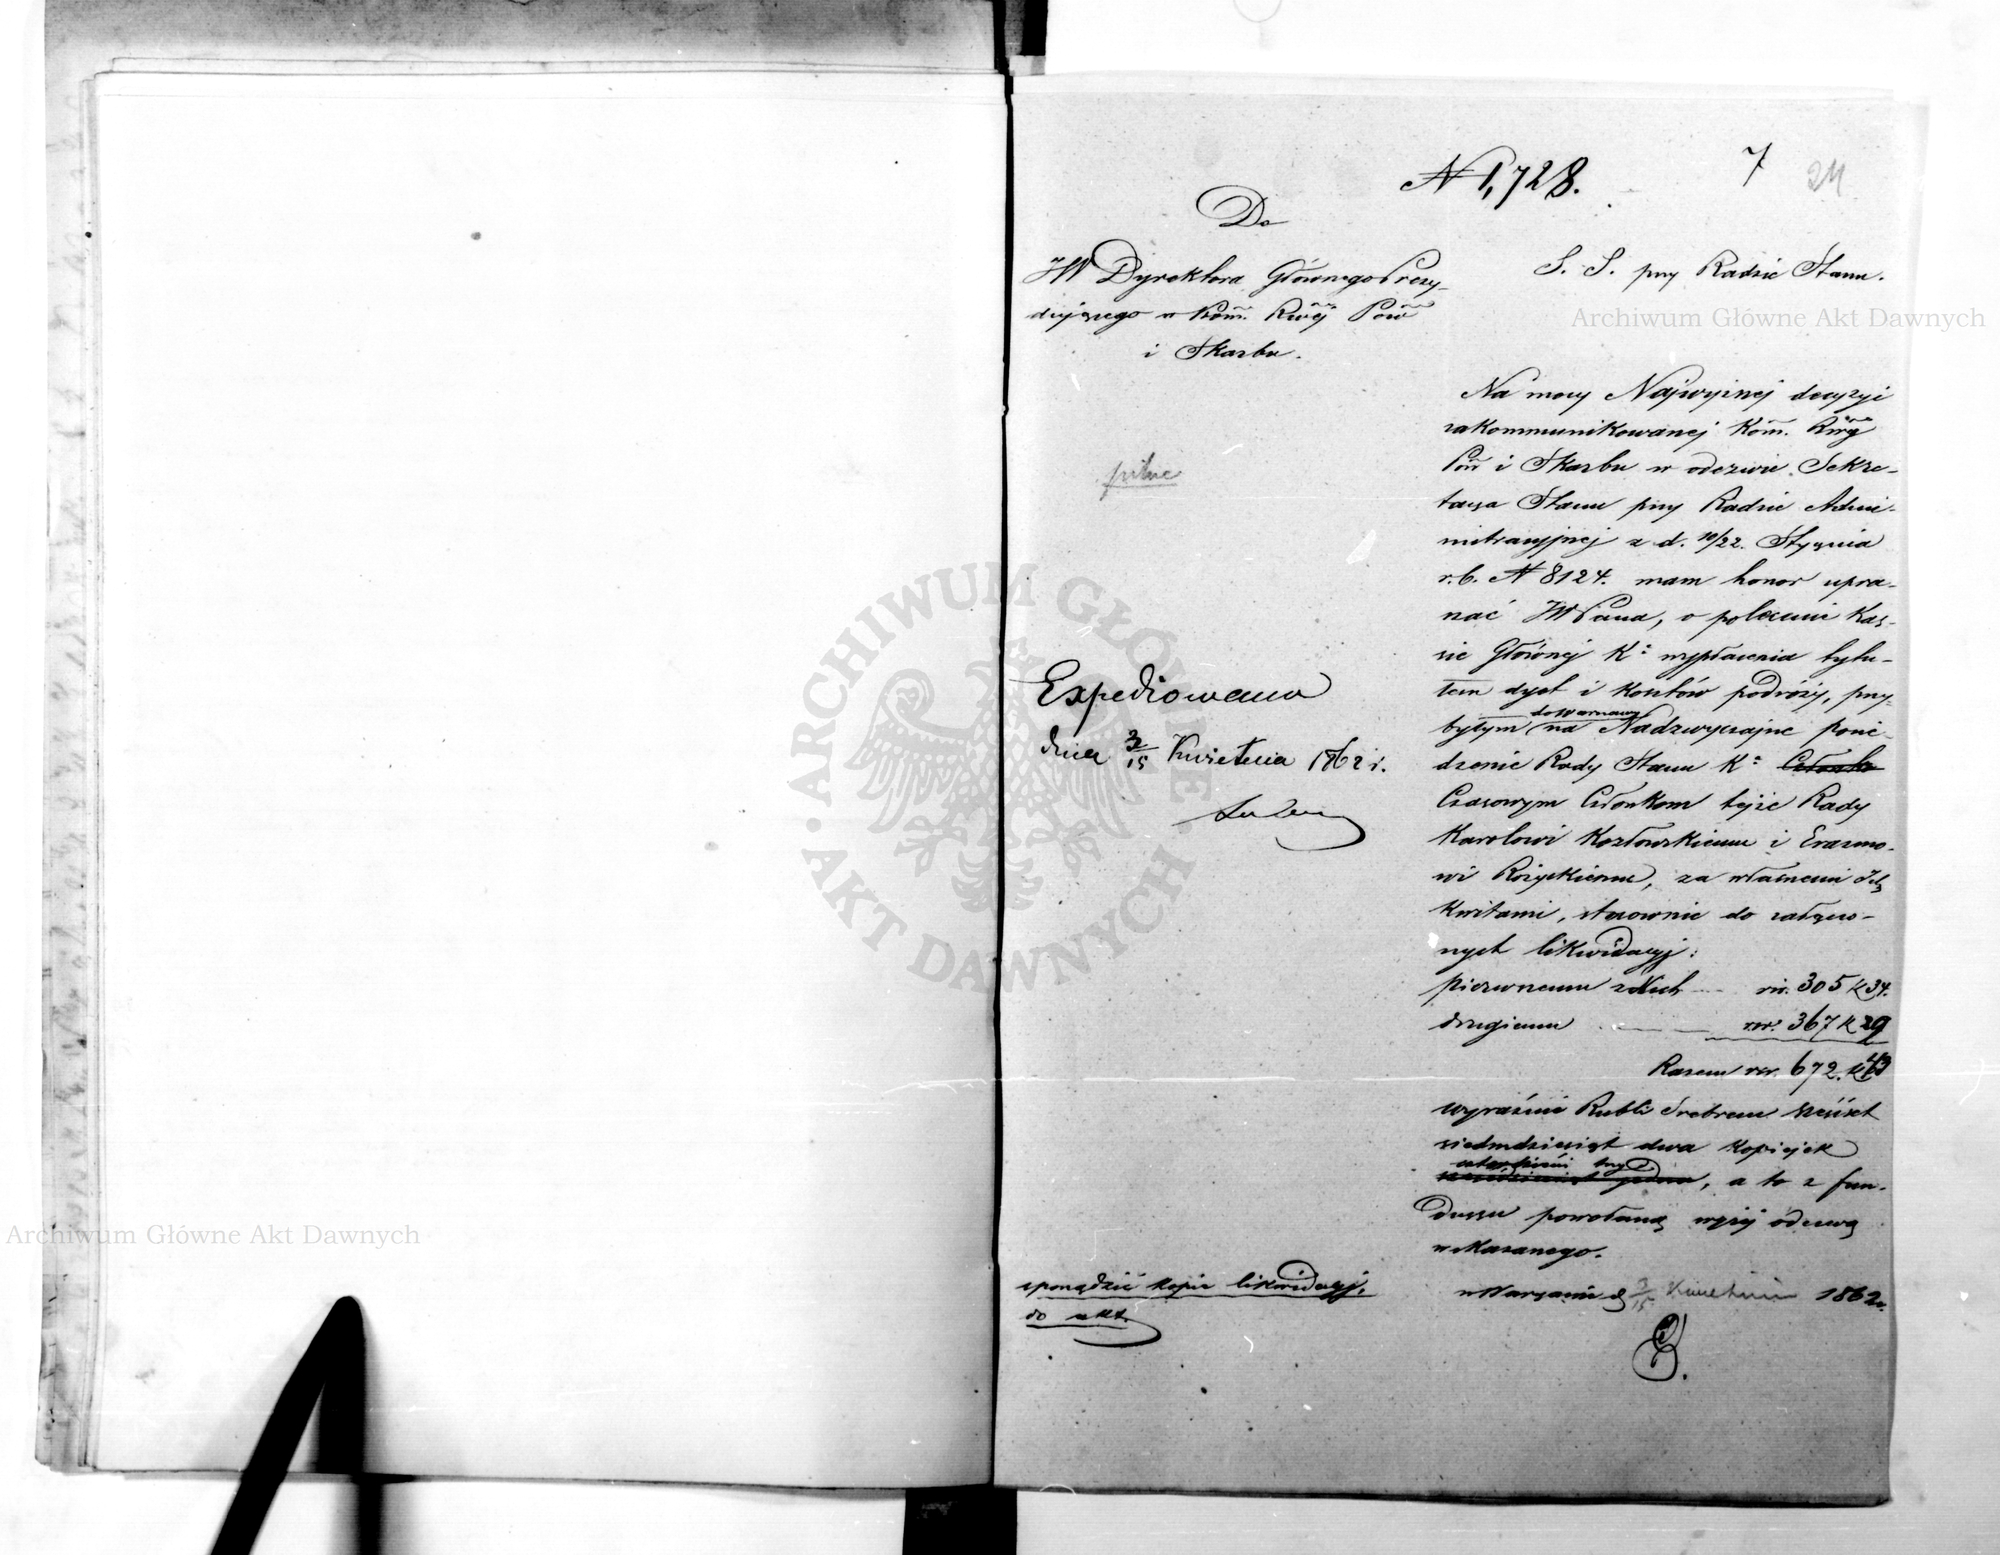 N 1,728.
7
24
Do
JW Dyrektora Głównego Prezy-
dującego w Kom. Rwej Pow
i Skarbu.
S. S. przy Radzie Stanu.
pilne
Na mocy Najwyższej decyzyi
zakommunikowanej Kom. Rwej
Pow i Skarbu w odezwie Sekre-
tarza Stanu przy Radzie Admi-
nistracyjnej z d. 10/22. Stycznia
r.b. N 8124. mam honor upra-
szać JWPana, o polecenie Kas-
sie Głównej K: wypłacenia tytu-
łem dyet i kosztów podróży, przy-
byłym do Warszawy na Nadzwyczajne posie-
dzenie Rady Stanu K: Członko
Czasowym Członkom tejże Rady
Karolowi Kozłowskiemu i Erazmo-
wi Różyckiemu, za własnemi Ich
Kwitami, stosownie do załączo-
nych likwidacyj:
pierwszemu z Nich rsr. 305 k 34.
drugiemu rsr. 367 k 29
Razem rsr. 672. k 63
wyraźnie Rubli Srebrem sześćset
siedmdziesiąt dwa kopiejek
sześćdziesiąt trzy, a to z fun-
duszu powołaną wyżej odezwą
wskazanego.
w Warszawie d 3/15 Kwietnia 1862 r.
Expediowano
dnia 3/15 Kwietnia 1862 r.
sporządzić kopie likwidacyj.
do akt
Archiwum Główne Akt Dawnych
Archiwum Główne Akt Dawnych
ARCHIWUM GŁÓWNE AKT DAWNYCH